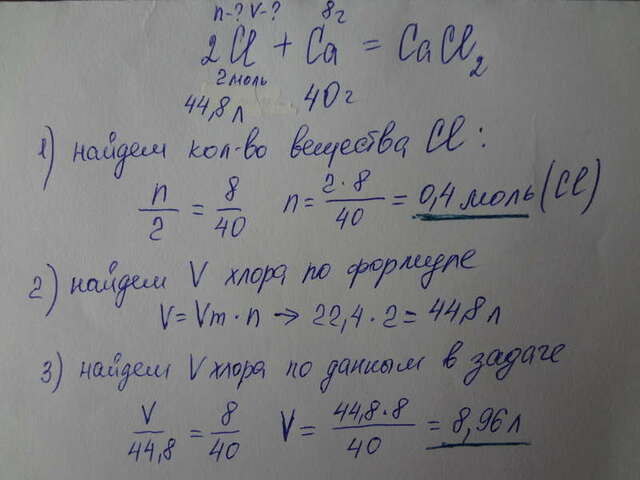 n-? V-? 8г
2Cl + Ca = CaCl₂
2моль
44,8л 40г
1) найдем кол-во вещества Cl:
n/2 = 8/40 n = 2·8/40 = 0,4 моль (Cl)
2) найдем V хлора по формуле
V = Vm·n → 22,4·2 = 44,8 л
3) найдем V хлора по данным в задаче
V/44,8 = 8/40 V = 44,8·8/40 = 8,96л